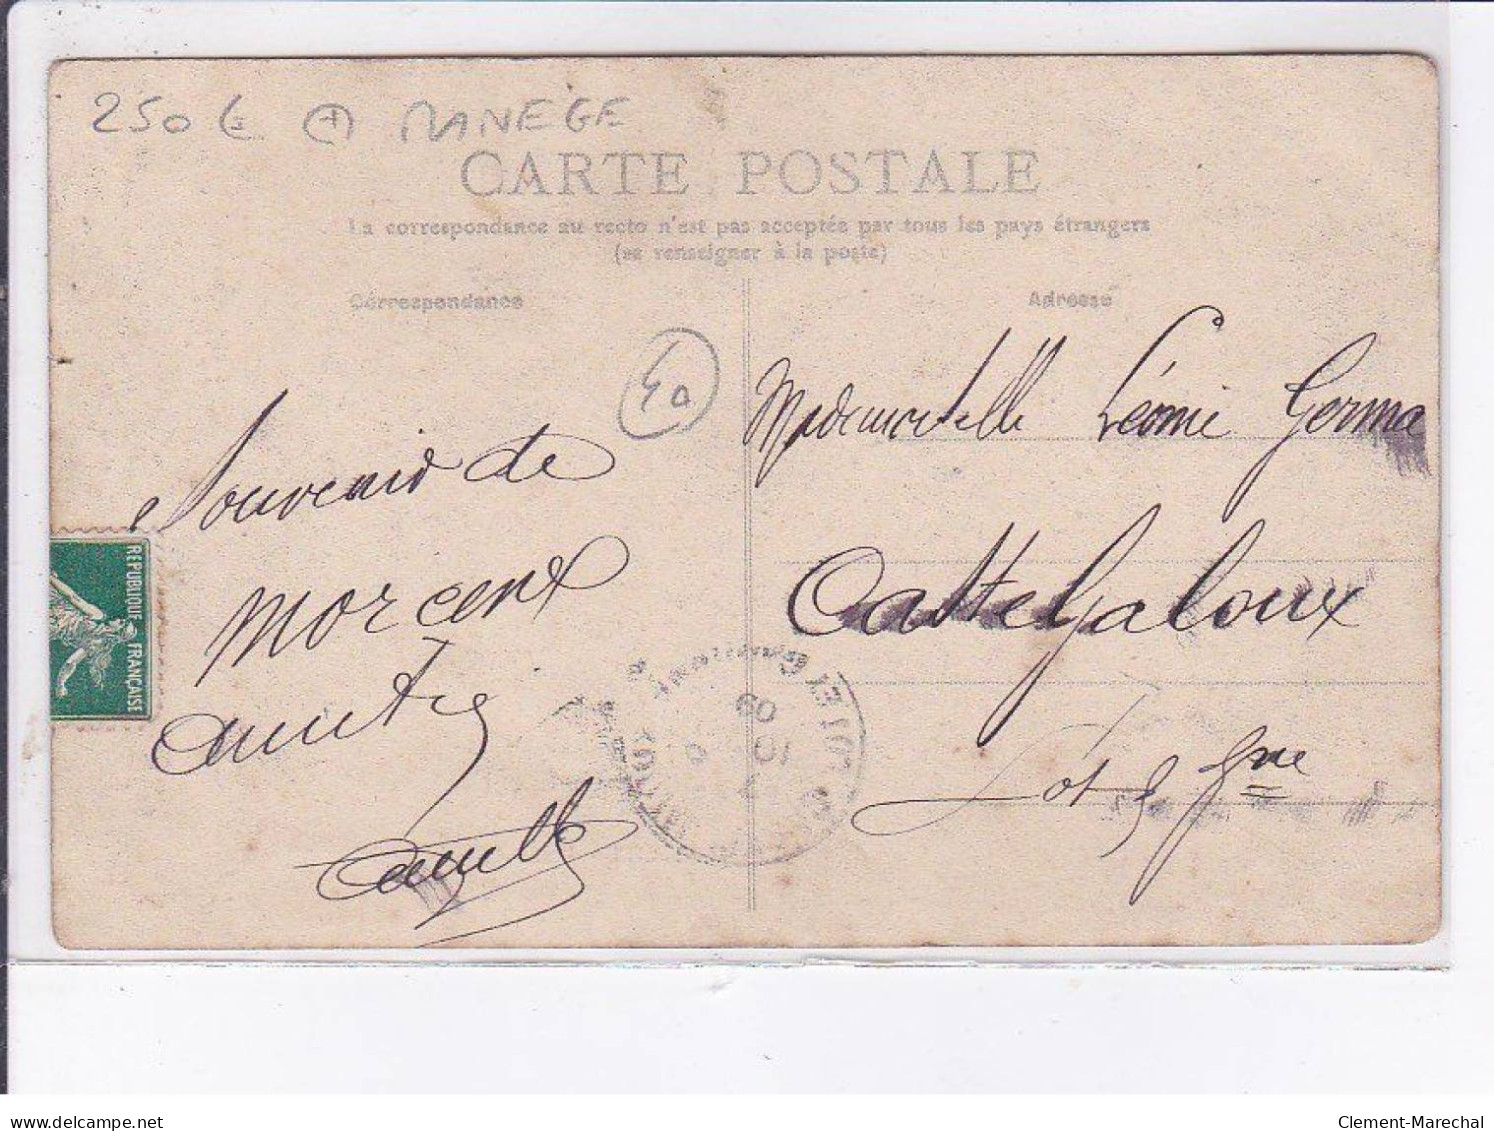 250 € + MANEGE
CARTE POSTALE
La correspondance au recto n'est pas acceptée par tous les pays étrangers
(se renseigner à la poste)
Correspondance
Adresse
40
Souvenir de
Morcenx
amitié
Camille
REPUBLIQUE FRANÇAISE
Mademoiselle Léonie Germa
Casteljaloux
Lot & Gne
09
10
delcampe.net
Clement-Marechal